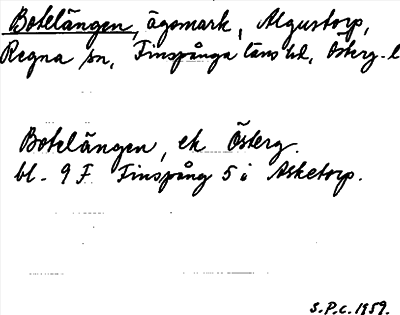 Botelängen, ägomark, Algustorp,
Regna sn, Finspånga läns hd, Österg. l
Botelängen, ek Österg.
bl. 9 F Finspång 5 i Asketorp.
S.P.C. 1959.